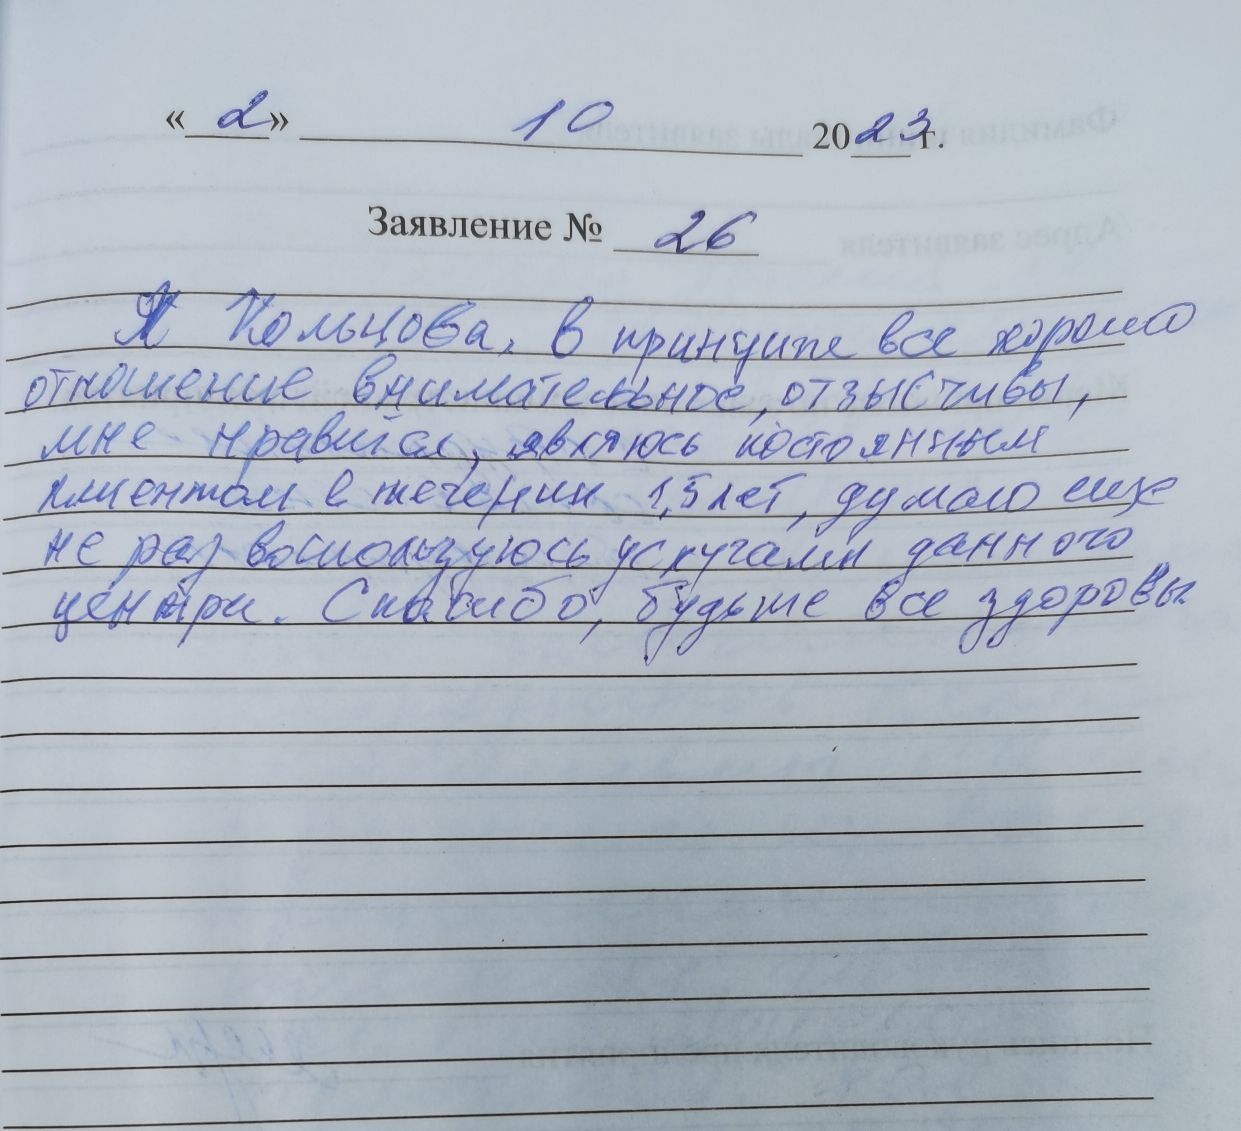 «2» 10 2023 г.
Заявление № 26
Я Кольцова, в принципе все хорошо
отношение внимательное, отзысчивы,
мне нравится, являюсь постоянным
клиентом в течении 1,5 лет, думаю еще
не раз воспользуюсь услугами данного
центра. Спасибо, будьте все здоровы